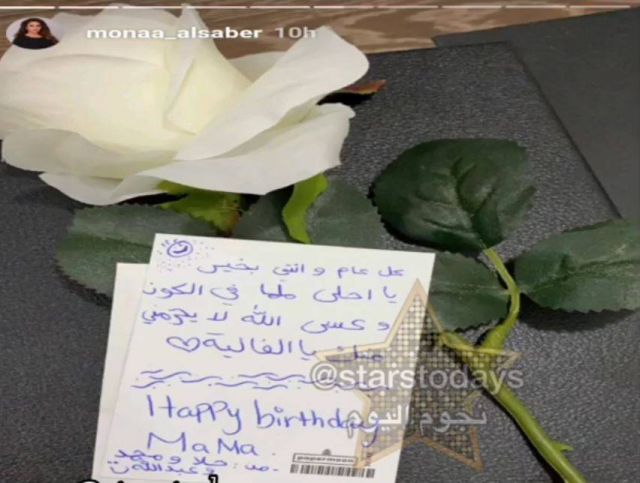 monaa_alsaber 10h
كل عام و انتي بخير
يا احلى ماما في الكون
و عسى الله لا يحرمني
منك يا الغالية♡
@starstodays
نجوم اليوم
Happy birthday
MaMa
papermoon
من: حلا و محمد
و عبدالله